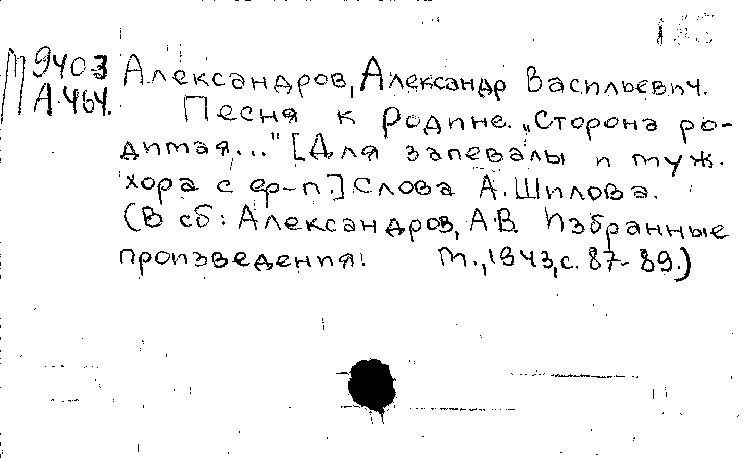 М 9403
А.464.
Александров, Александр Васильевич.
Песня к Родине. „Сторона ро-
димая..." [Для запевалы и муж.
хора с ф-п.] Слова А. Шилова.
(В сб: Александров, А.В. Избранные
произведения. М., 1943, с. 87-89.)